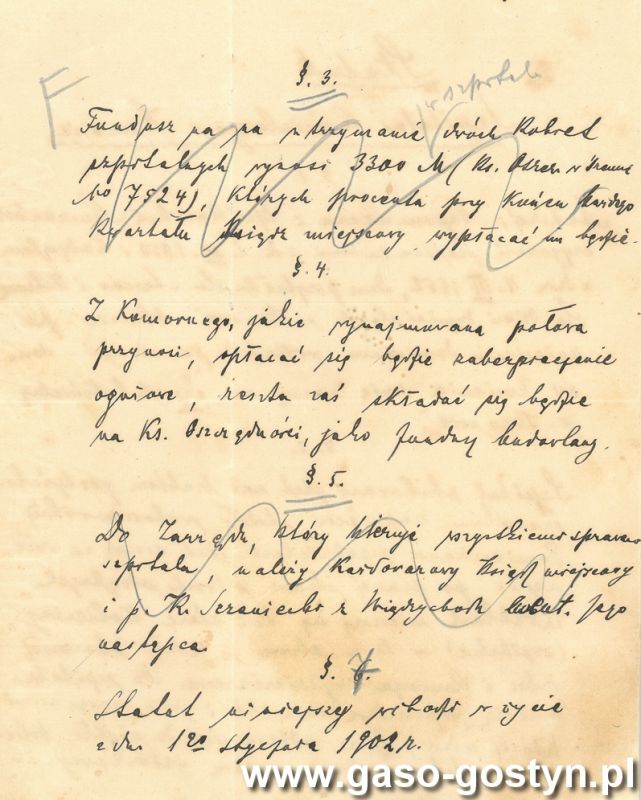 §. 3.
w szpitalu
F
Fundusz na na utrzymanie dwóch kobiet
szpitalnych wynosi 3300 M (Ks. Oszcz. w Śremie
No 7524), których procenta przy końcu każdego
kwartału Ksiądz miejscowy wypłacać im będzie.
§. 4.
Z Komornego, jakie wynajmowana połowa
przynosi, spłacać się będzie zabezpieczenie
ogniowe, reszta zaś składać się będzie
na Ks. Oszczędności, jako fundusz budowlany.
§. 5.
Do Zarządu, który kieruje wszystkiemi sprawami
szpitala, należy każdorazowy Ksiądz miejscowy
i p. K. Szaniecki z Międzychodu jego
następca.
§.
Statut niniejszy wchodzi w życie
z dn. 1go stycznia 1902 r.
www.gaso-gostyn.pl